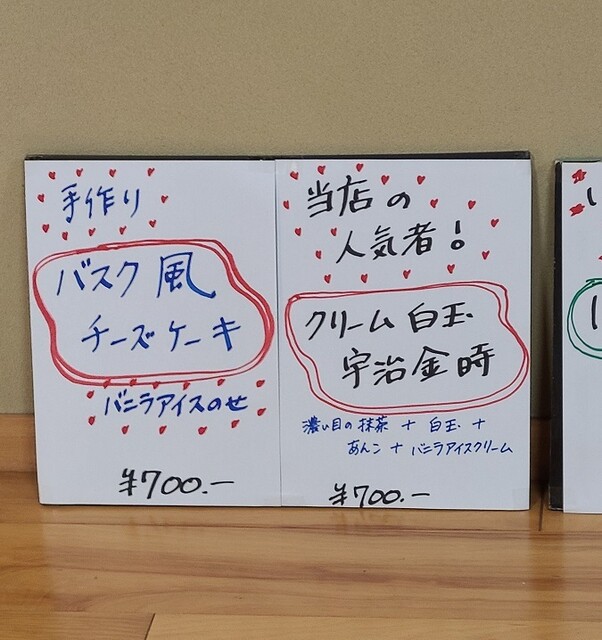 手作り
バスク風
チーズケーキ
バニラアイスのせ
¥700.-
当店の
人気者!
クリーム白玉
宇治金時
濃い目の抹茶 + 白玉 +
あんこ + バニラアイスクリーム
¥700.-